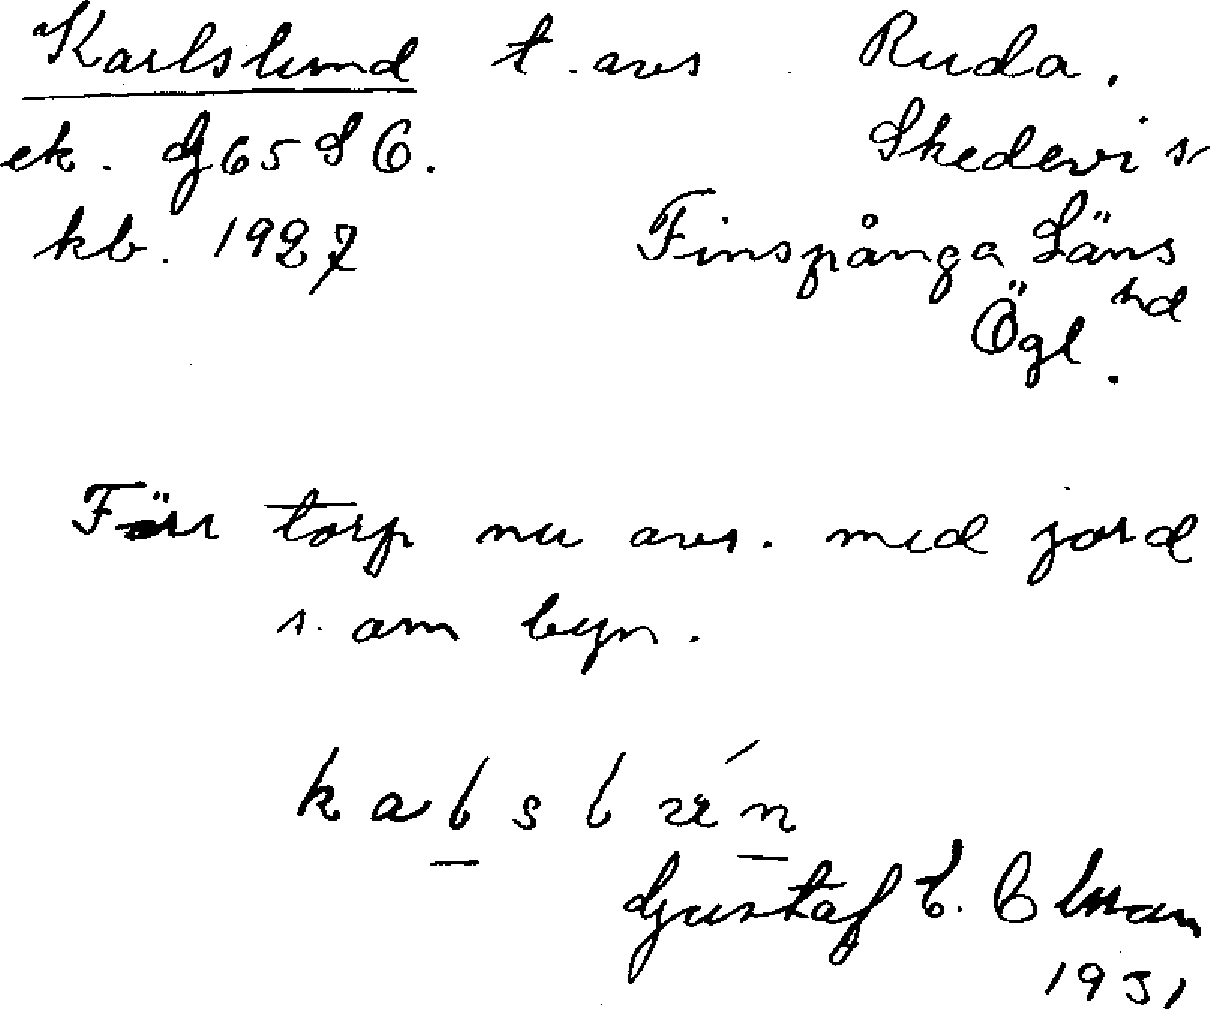 Karlslund t. avs Ruda.
ek. dj 65 S 6. Skedevi s
kb. 1927 Finspånga Läns
hd
Ögl.
Förr torp nu avs. med jord
s. om byn.
Gustaf E.
1931